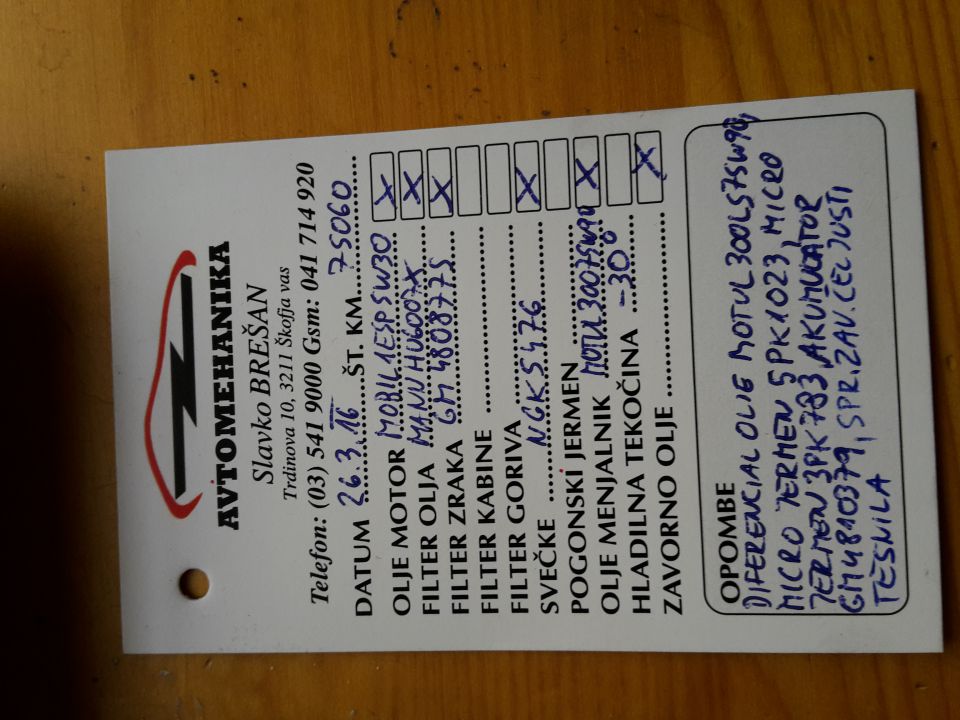 AVTOMEHANIKA
Slavko BREŠAN
Trdinova 10, 3211 Škofja vas
Telefon: (03) 541 9000 Gsm: 041 714 920
DATUM 26.3.16 ŠT. KM. 75060
OLJE MOTOR MOBIL1ESP5W30 X
FILTER OLJA MANNHU6007X X
FILTER ZRAKA GM4808775 X
FILTER KABINE
FILTER GORIVA
SVEČKE NGK5476 X
POGONSKI JERMEN
OLJE MENJALNIK MOTUL30075W90 X
HLADILNA TEKOČINA -30° 
ZAVORNO OLJE X
OPOMBE
DIFERENCIAL OLJE MOTUL300LS75W90,
MICRO JERMEN 5PK1023 MICRO
JERMEN 3PK783, AKUMULATOR
GM4810379, SPR.ZAV.ČELJUSTI
TESNILA